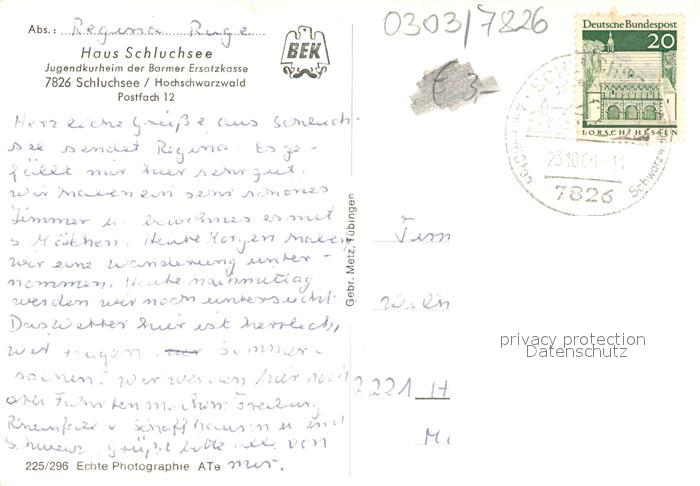 Abs.: Regina Ruge
Haus Schluchsee
Jugendkurheim der Barmer Ersatzkasse
7826 Schluchsee / Hochschwarzwald
Postfach 12
BEK
0303/7826
Deutsche Bundespost
20
LORSCH/HESSEN
23.10.69-11
7826
Schwarzw
Herzliche Grüße aus Schluch-
see sendet Regina. Es ge-
fällt mir hier sehr gut.
Wir haben ein sehr schönes
Zimmer u. bewohnen es mit
5 Mädchen. Heute Morgen haben
wir eine Wanderung unter-
nommen. Heute nachmittag
werden wir noch untersucht.
Das Wetter hier ist herrlich,
wir tragen Sommer-
sachen. Wir werden hier noch
drei Fahrten machen: Freiburg
Rheinfall v. Schaffhausen u. in d.
Schweiz. Grüßt bitte alle von
mir.
Gebr. Metz, Tübingen
2221 H
privacy protection
Datenschutz
225/296 Echte Photographie ATe